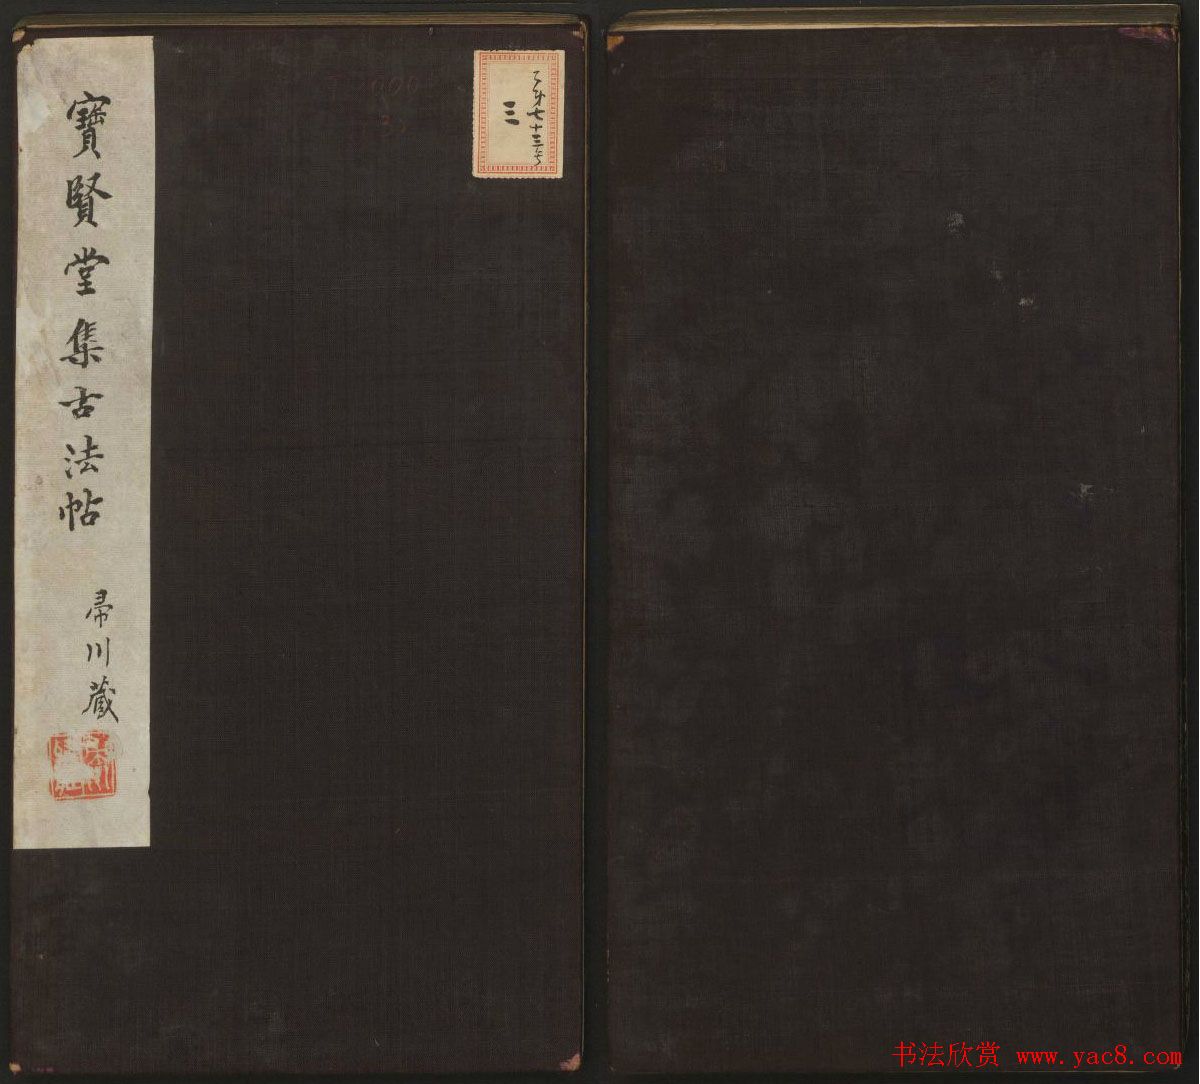 寶賢堂集古法帖
帚川藏
乙第七十三号
三
书法欣赏 www.yac8.com